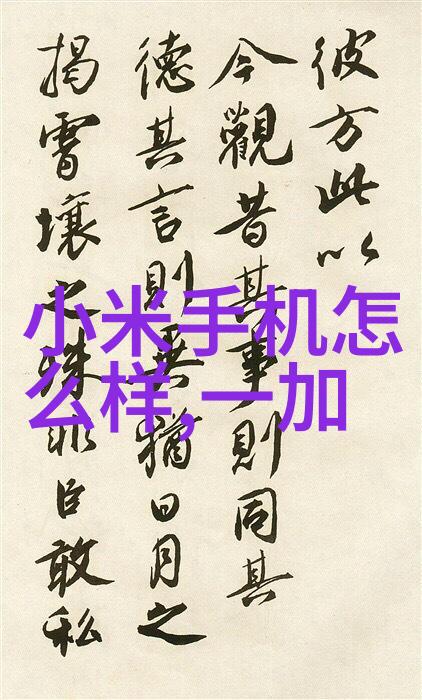 彼方此以
今觀昔其事則同其
德其言則異猶日月之
揭霄壤之殊非臣敢私
小米手机怎
么样,一加